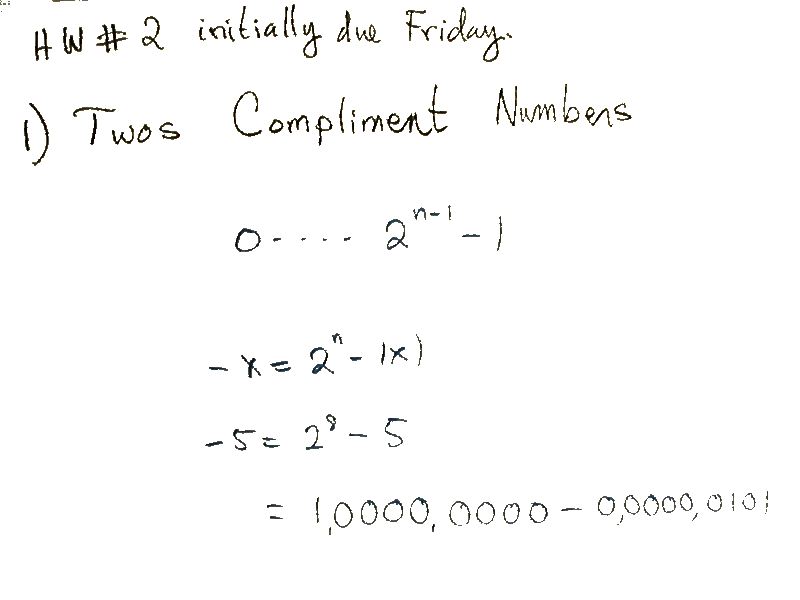 HW # 2 initially due Friday.
1) Twos Compliment Numbers
0 - - - - 2^{n-1} - 1
-x = 2^n - |x|
-5 = 2^8 - 5
= 1,0000,0000 - 0,0000,0101